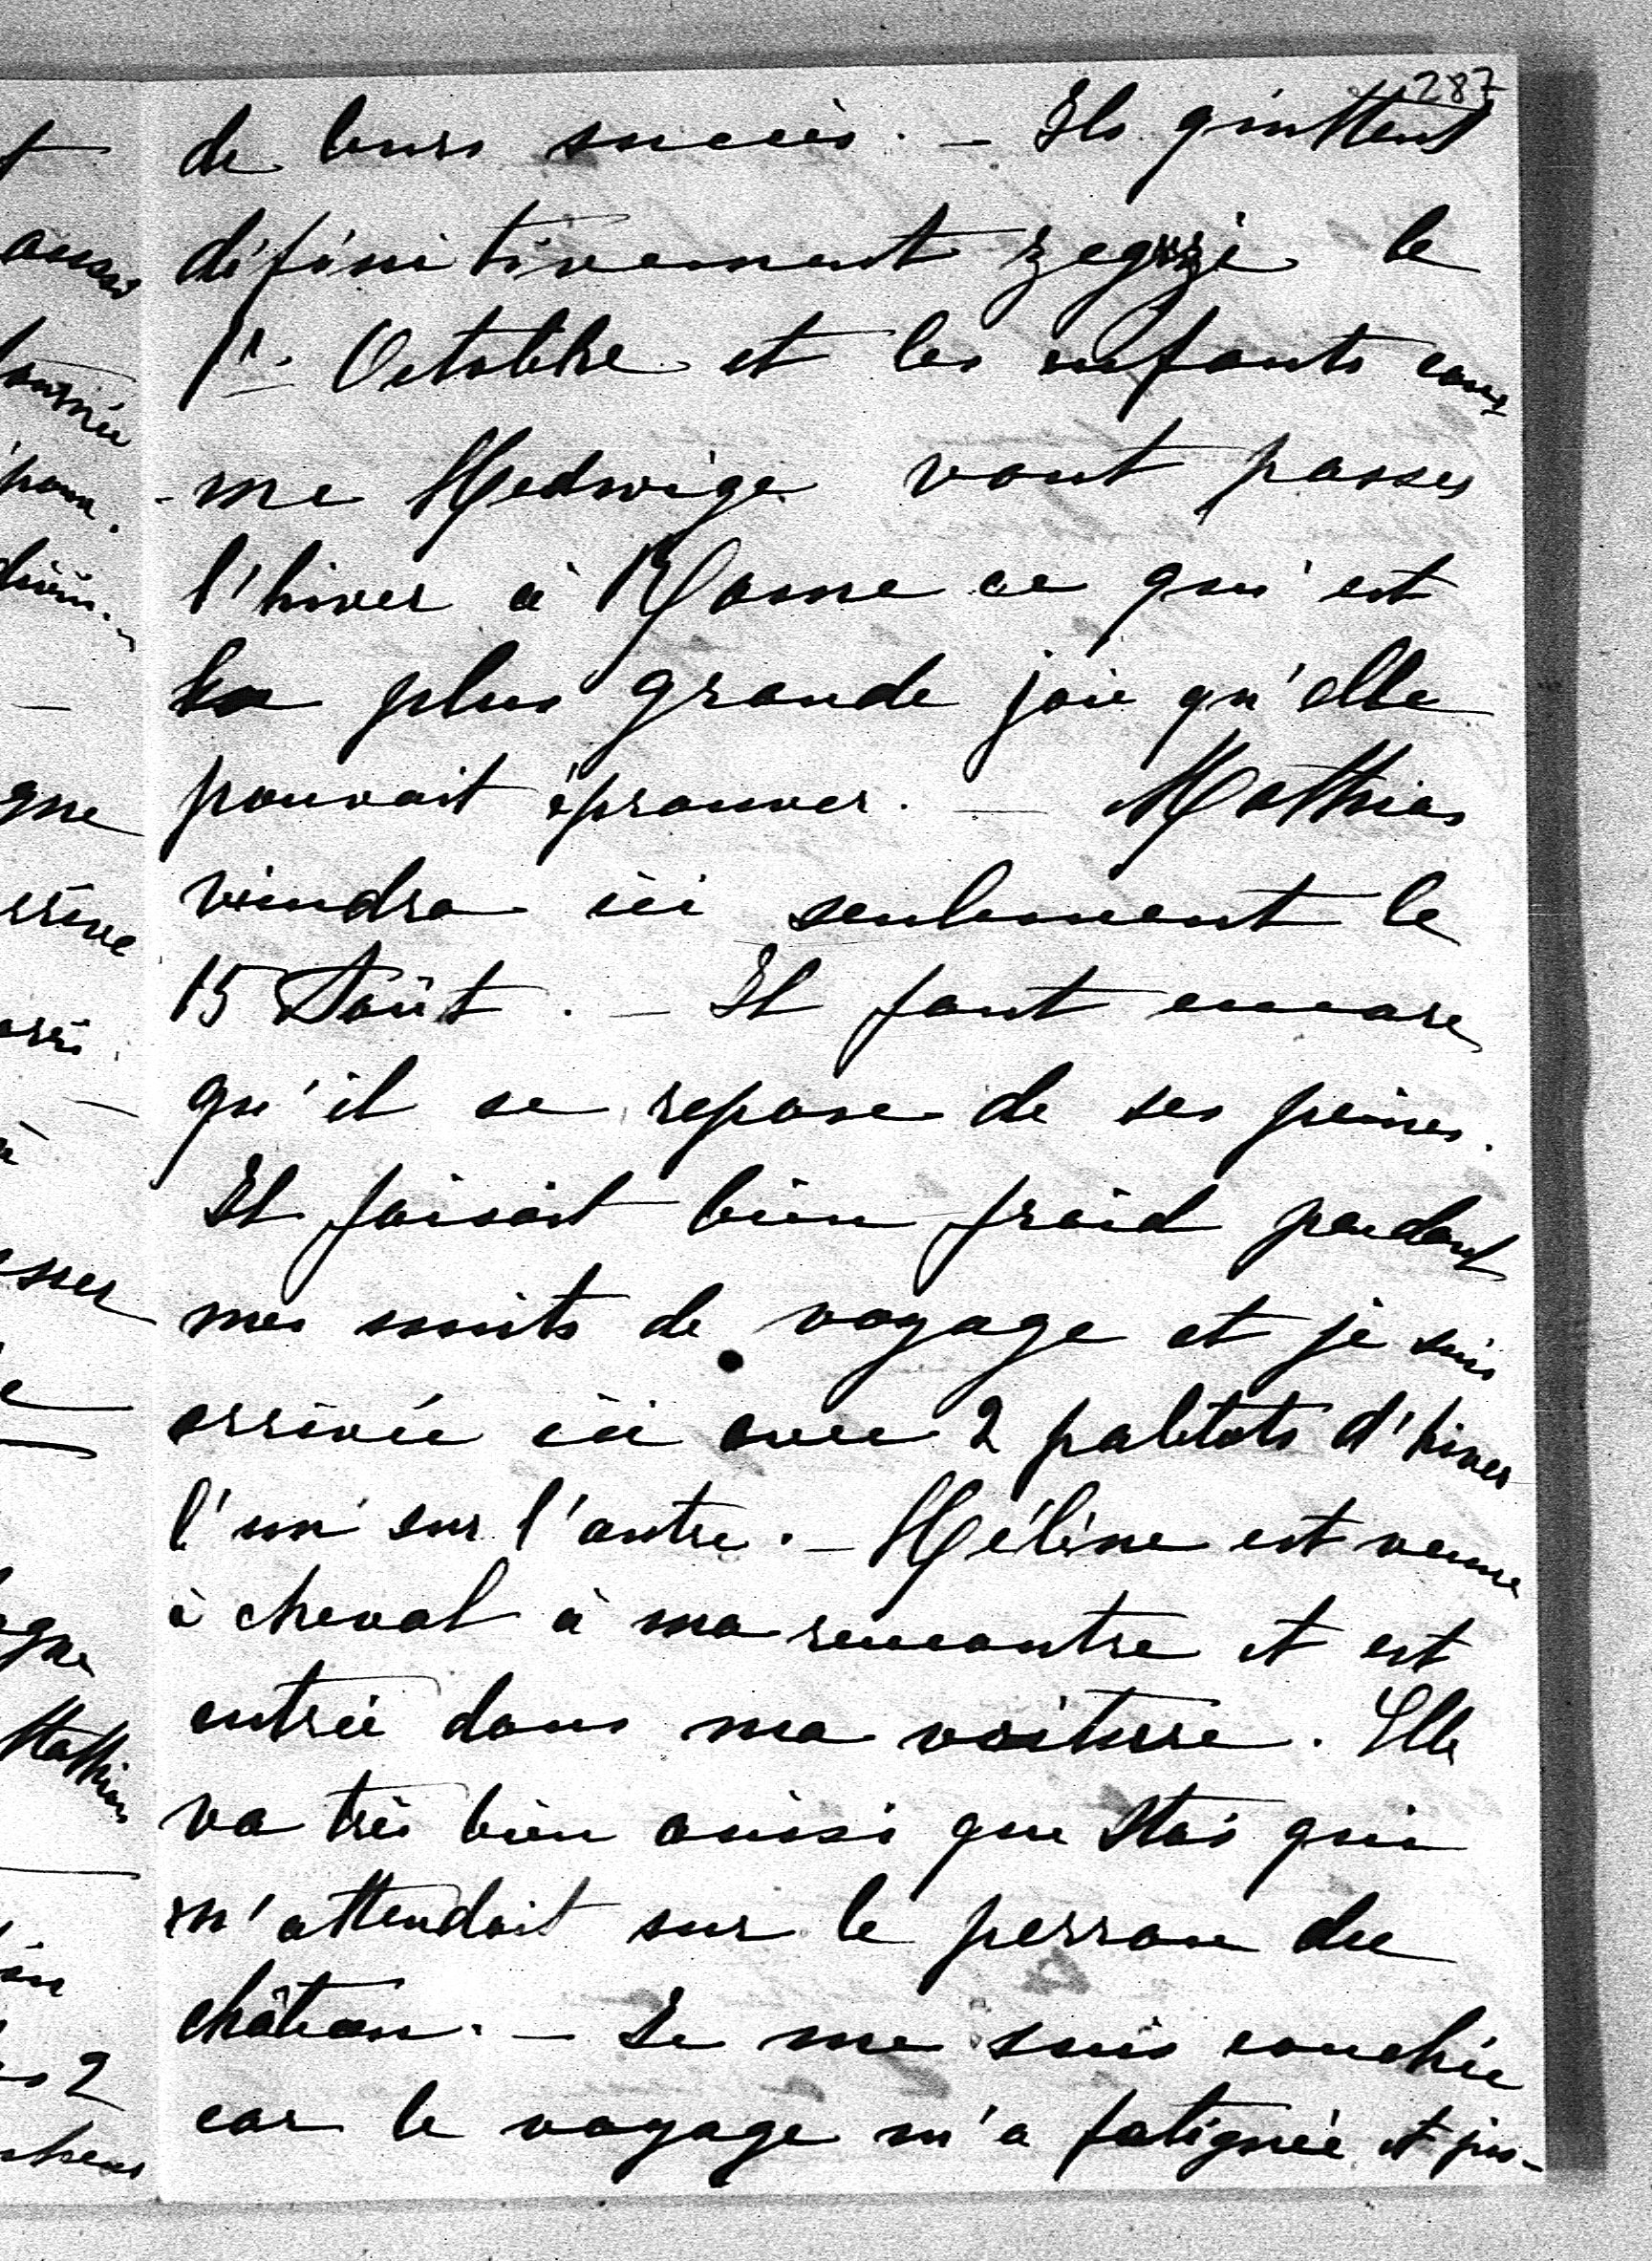 287
de leurs succès. — Ils quittent
définitivement Zegrże le
1er Octobre et les enfants com
-me Hedwige vont passer
l'hiver à Rome ce qui est
la plus grande joie qu'elle
pouvait éprouver. — Mathias
viendra ici seulement le
15 Août. — Il faut encore
qu'il se repose de ses peines.
Il faisait bien froid pendant
mes nuits de voyage et je suis
arrivée ici avec 2 paletots d'hiver
l'un sur l'autre. — Hélène est venue
à cheval à ma rencontre et est
entrée dans ma voiture. Elle
va très bien aussi que Stas qui
m'attendait sur le perron du
château. — Je me suis couchée
car le voyage m'a fatiguée et pui-